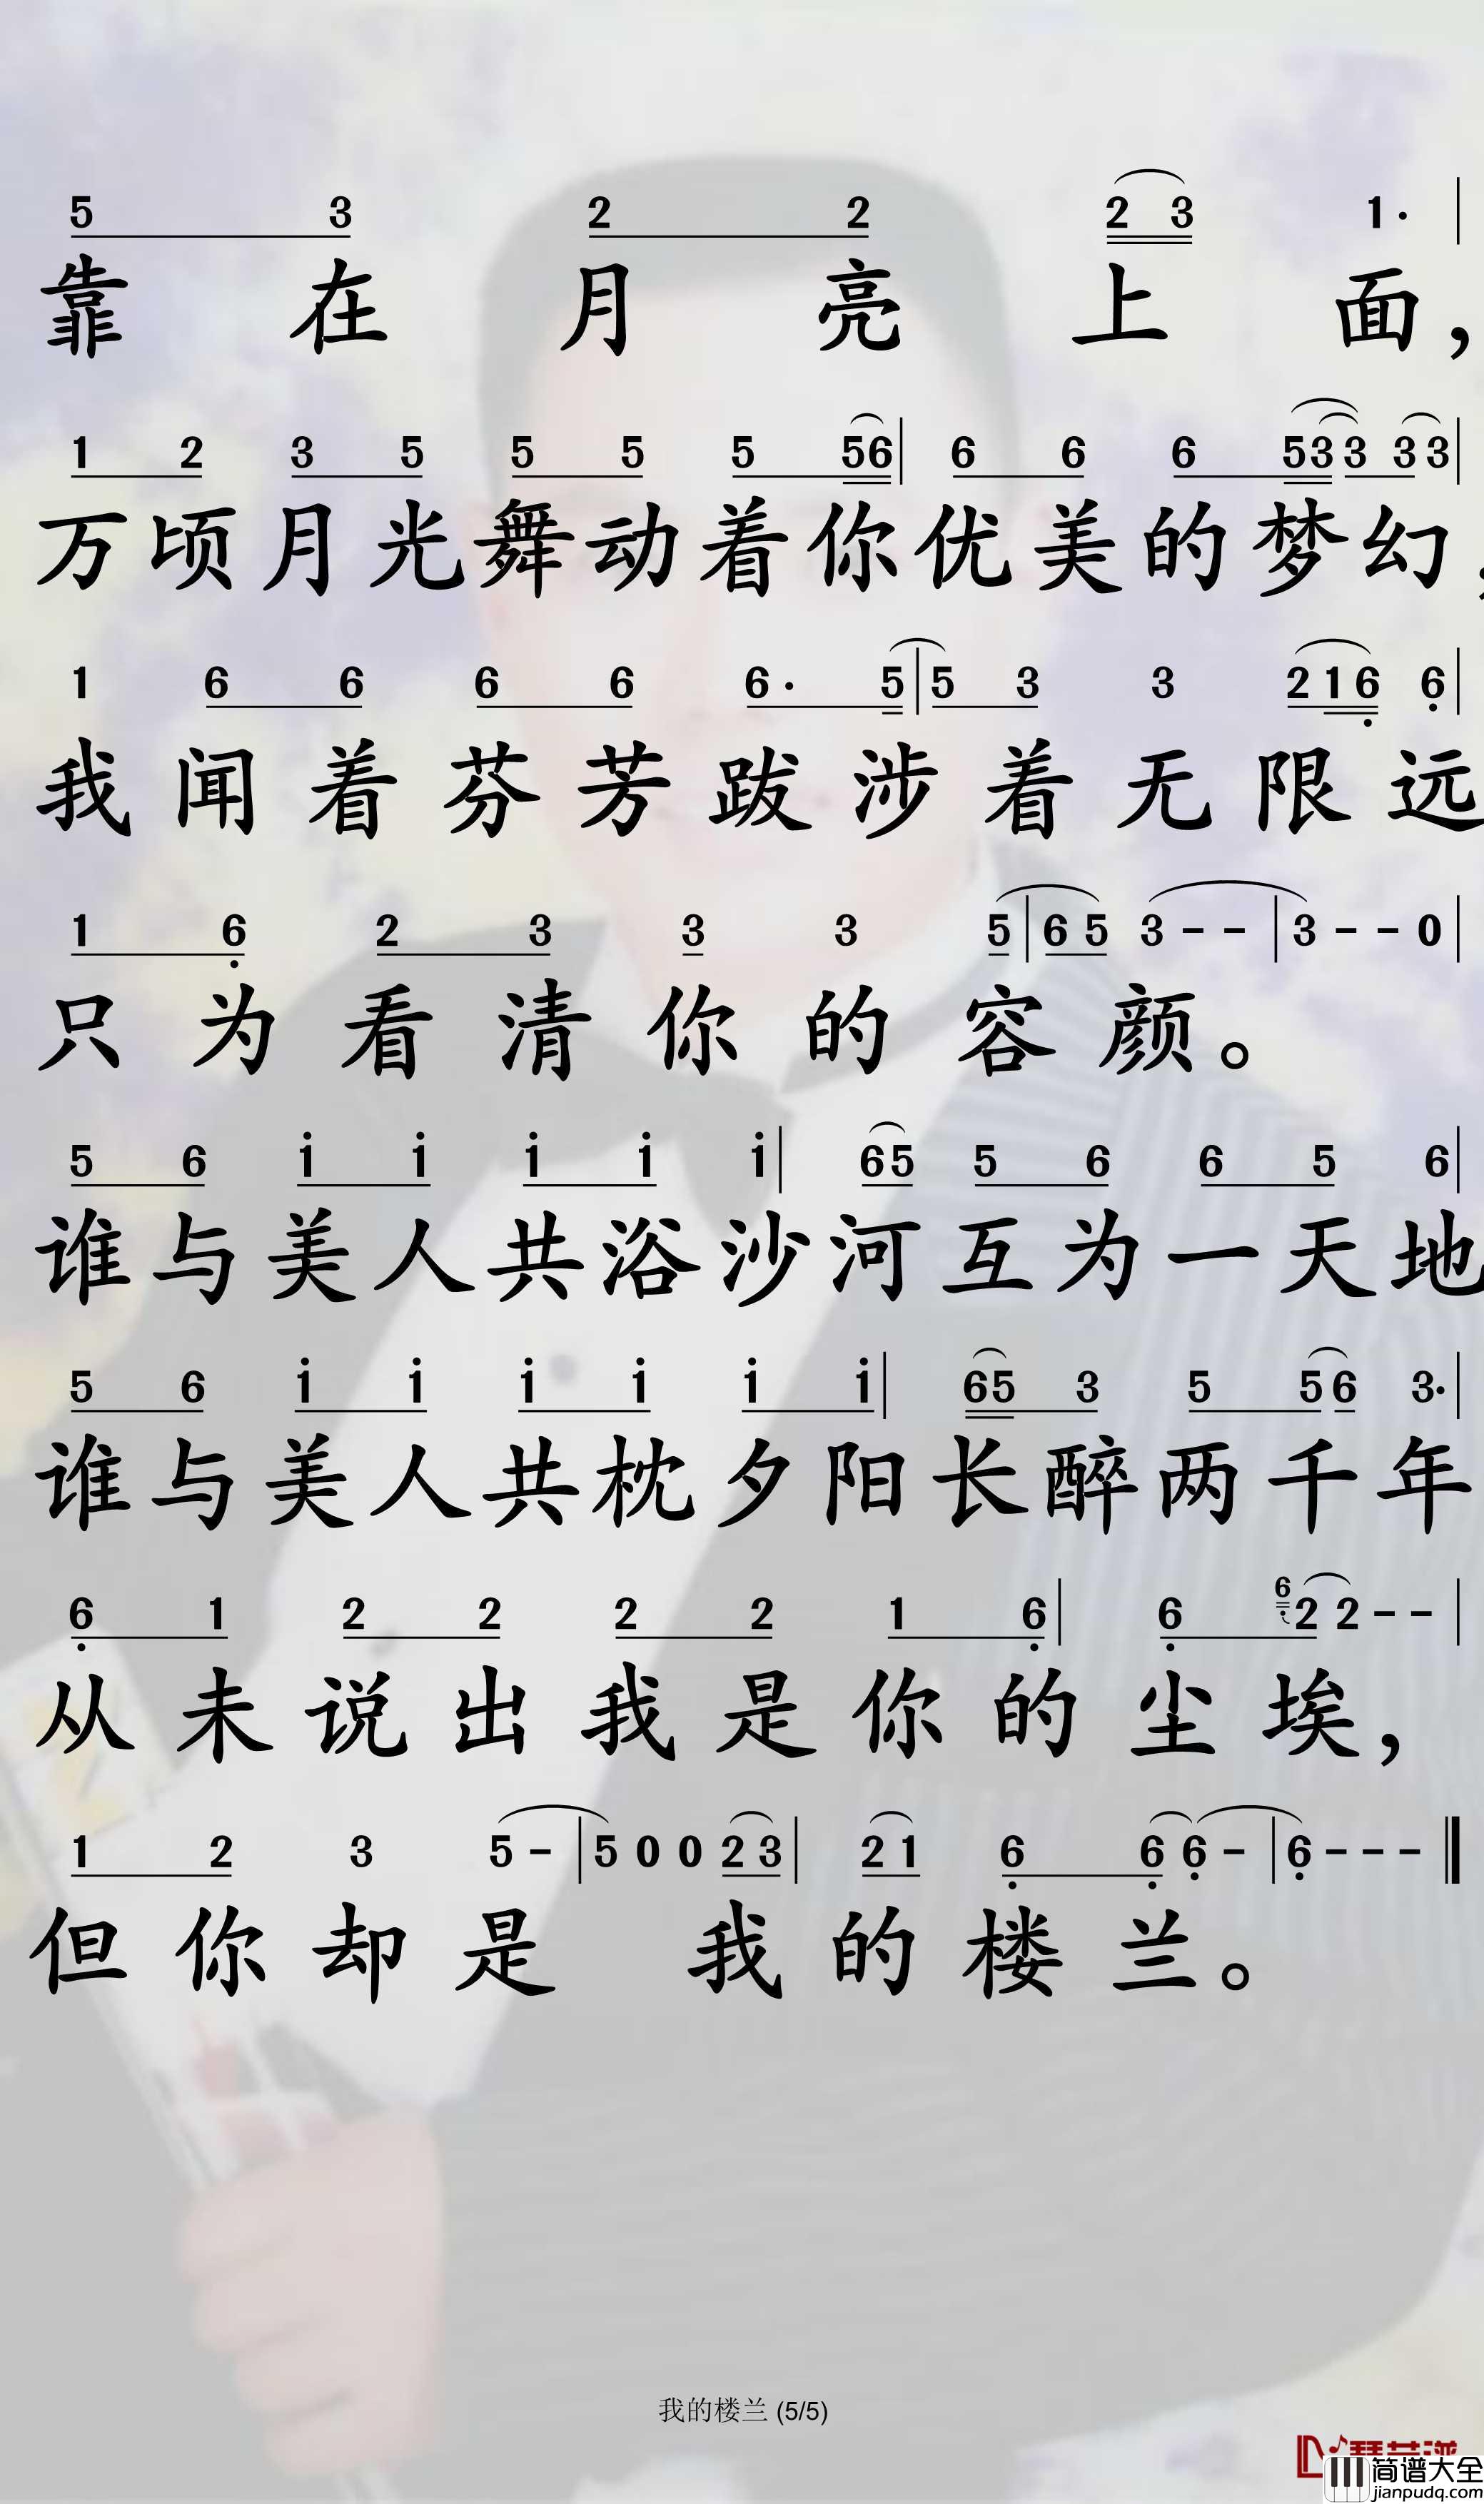 5 3 2 2 2 3 1·
靠在月亮上面，
1 2 3 5 5 5 5 56 6 6 6 53 3 3 3
万顷月光舞动着你优美的梦幻，
1 6 6 6 6 6· 5 5 3 3 2 1 6 6
我闻着芬芳跋涉着无限远
1 6 2 3 3 3 5 6 5 3 - - 3 - - 0
只为看清你的容颜。
5 6 i i i i i 65 5 6 6 5 6
谁与美人共浴沙河互为一天地
5 6 i i i i i i 65 3 5 5 6 3·
谁与美人共枕夕阳长醉两千年
6 1 2 2 2 2 1 6 6 6 2 2 - -
从未说出我是你的尘埃，
1 2 3 5 - 5 0 0 2 3 2 1 6 6 6 - 6 - - -
但你却是 我的楼兰。
我的楼兰 (5/5)
简谱大全
jianpudq.com